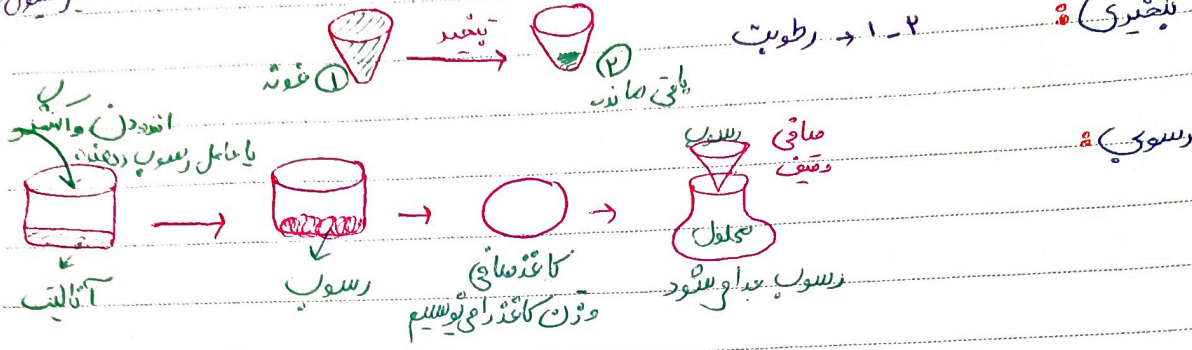 تبخیری :
۲-۱ → رطوبت
تبخیر
① نمونه
②
باقی مانده
رسوبی :
افزودن واکنشگر
یا عامل رسوب دهنده
آنالیت
رسوب
کاغذ صافی
وزن کاغذ را می نویسیم
رسوب
صافی
و قیف
محلول
رسوب جدا می شود